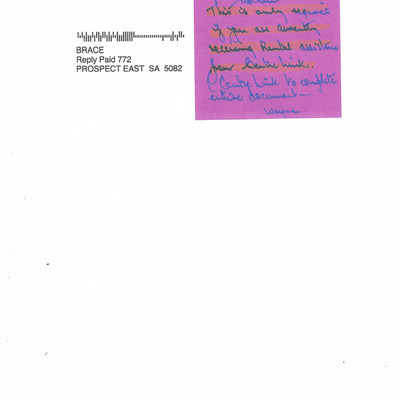 BRACE
Reply Paid 772
PROSPECT EAST SA 5082
This is only required
if you are currently
receiving Rental assistance
from Centre Link.
Centre Link to complete
entire document
Wayne